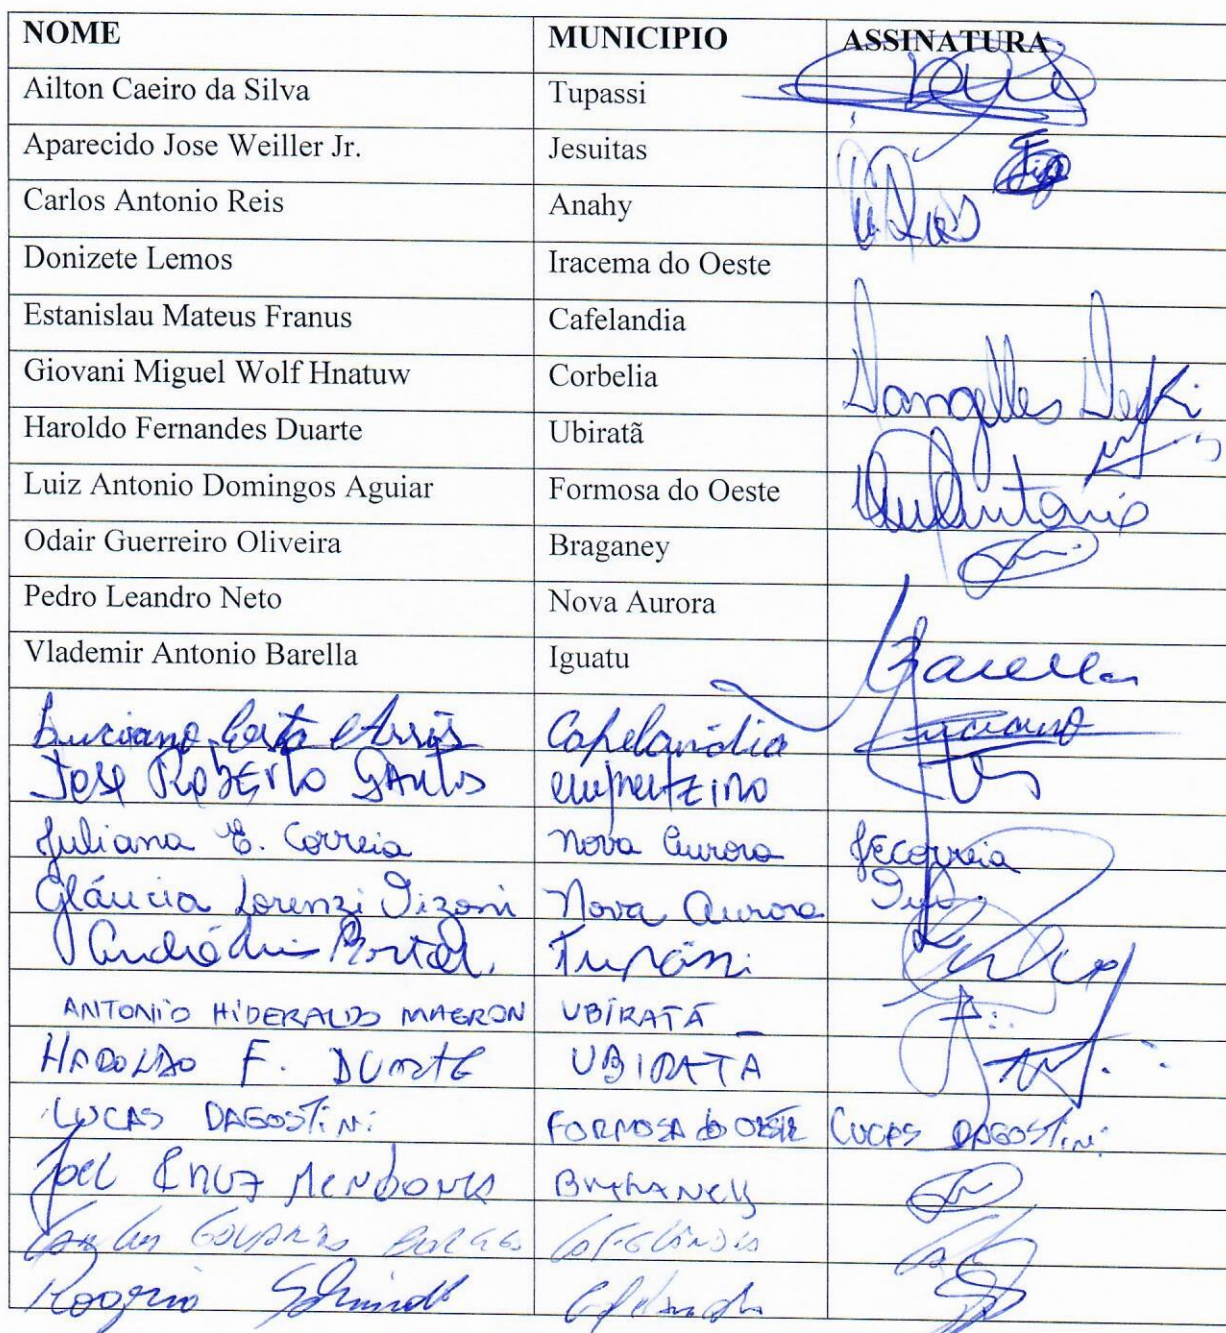 NOME MUNICIPIO ASSINATURA
Ailton Caeiro da Silva Tupassi
Aparecido Jose Weiller Jr. Jesuitas
Carlos Antonio Reis Anahy
Donizete Lemos Iracema do Oeste
Estanislau Mateus Franus Cafelandia
Giovani Miguel Wolf Hnatuw Corbelia
Haroldo Fernandes Duarte Ubiratã
Luiz Antonio Domingos Aguiar Formosa do Oeste
Odair Guerreiro Oliveira Braganey
Pedro Leandro Neto Nova Aurora
Vlademir Antonio Barella Iguatu Barella
Luciano Assis Cafelandia Luciano
Jose Roberto Santos
Juliana E. Correia Nova Aurora JECorreia
Gláucia Lorenzi Nova Aurora
Tupãssi
ANTONIO HIDERALDO MAGRON UBIRATÃ
HAROLDO F. DUARTE UBIRATÃ
LUCAS DAGOSTINI FORMOSA do OESTE LUCAS DAGOSTINI
Joel CRUZ MENDONÇA BRAGANEY
Cafelândia
Rogerio Schmidt Cafelandia